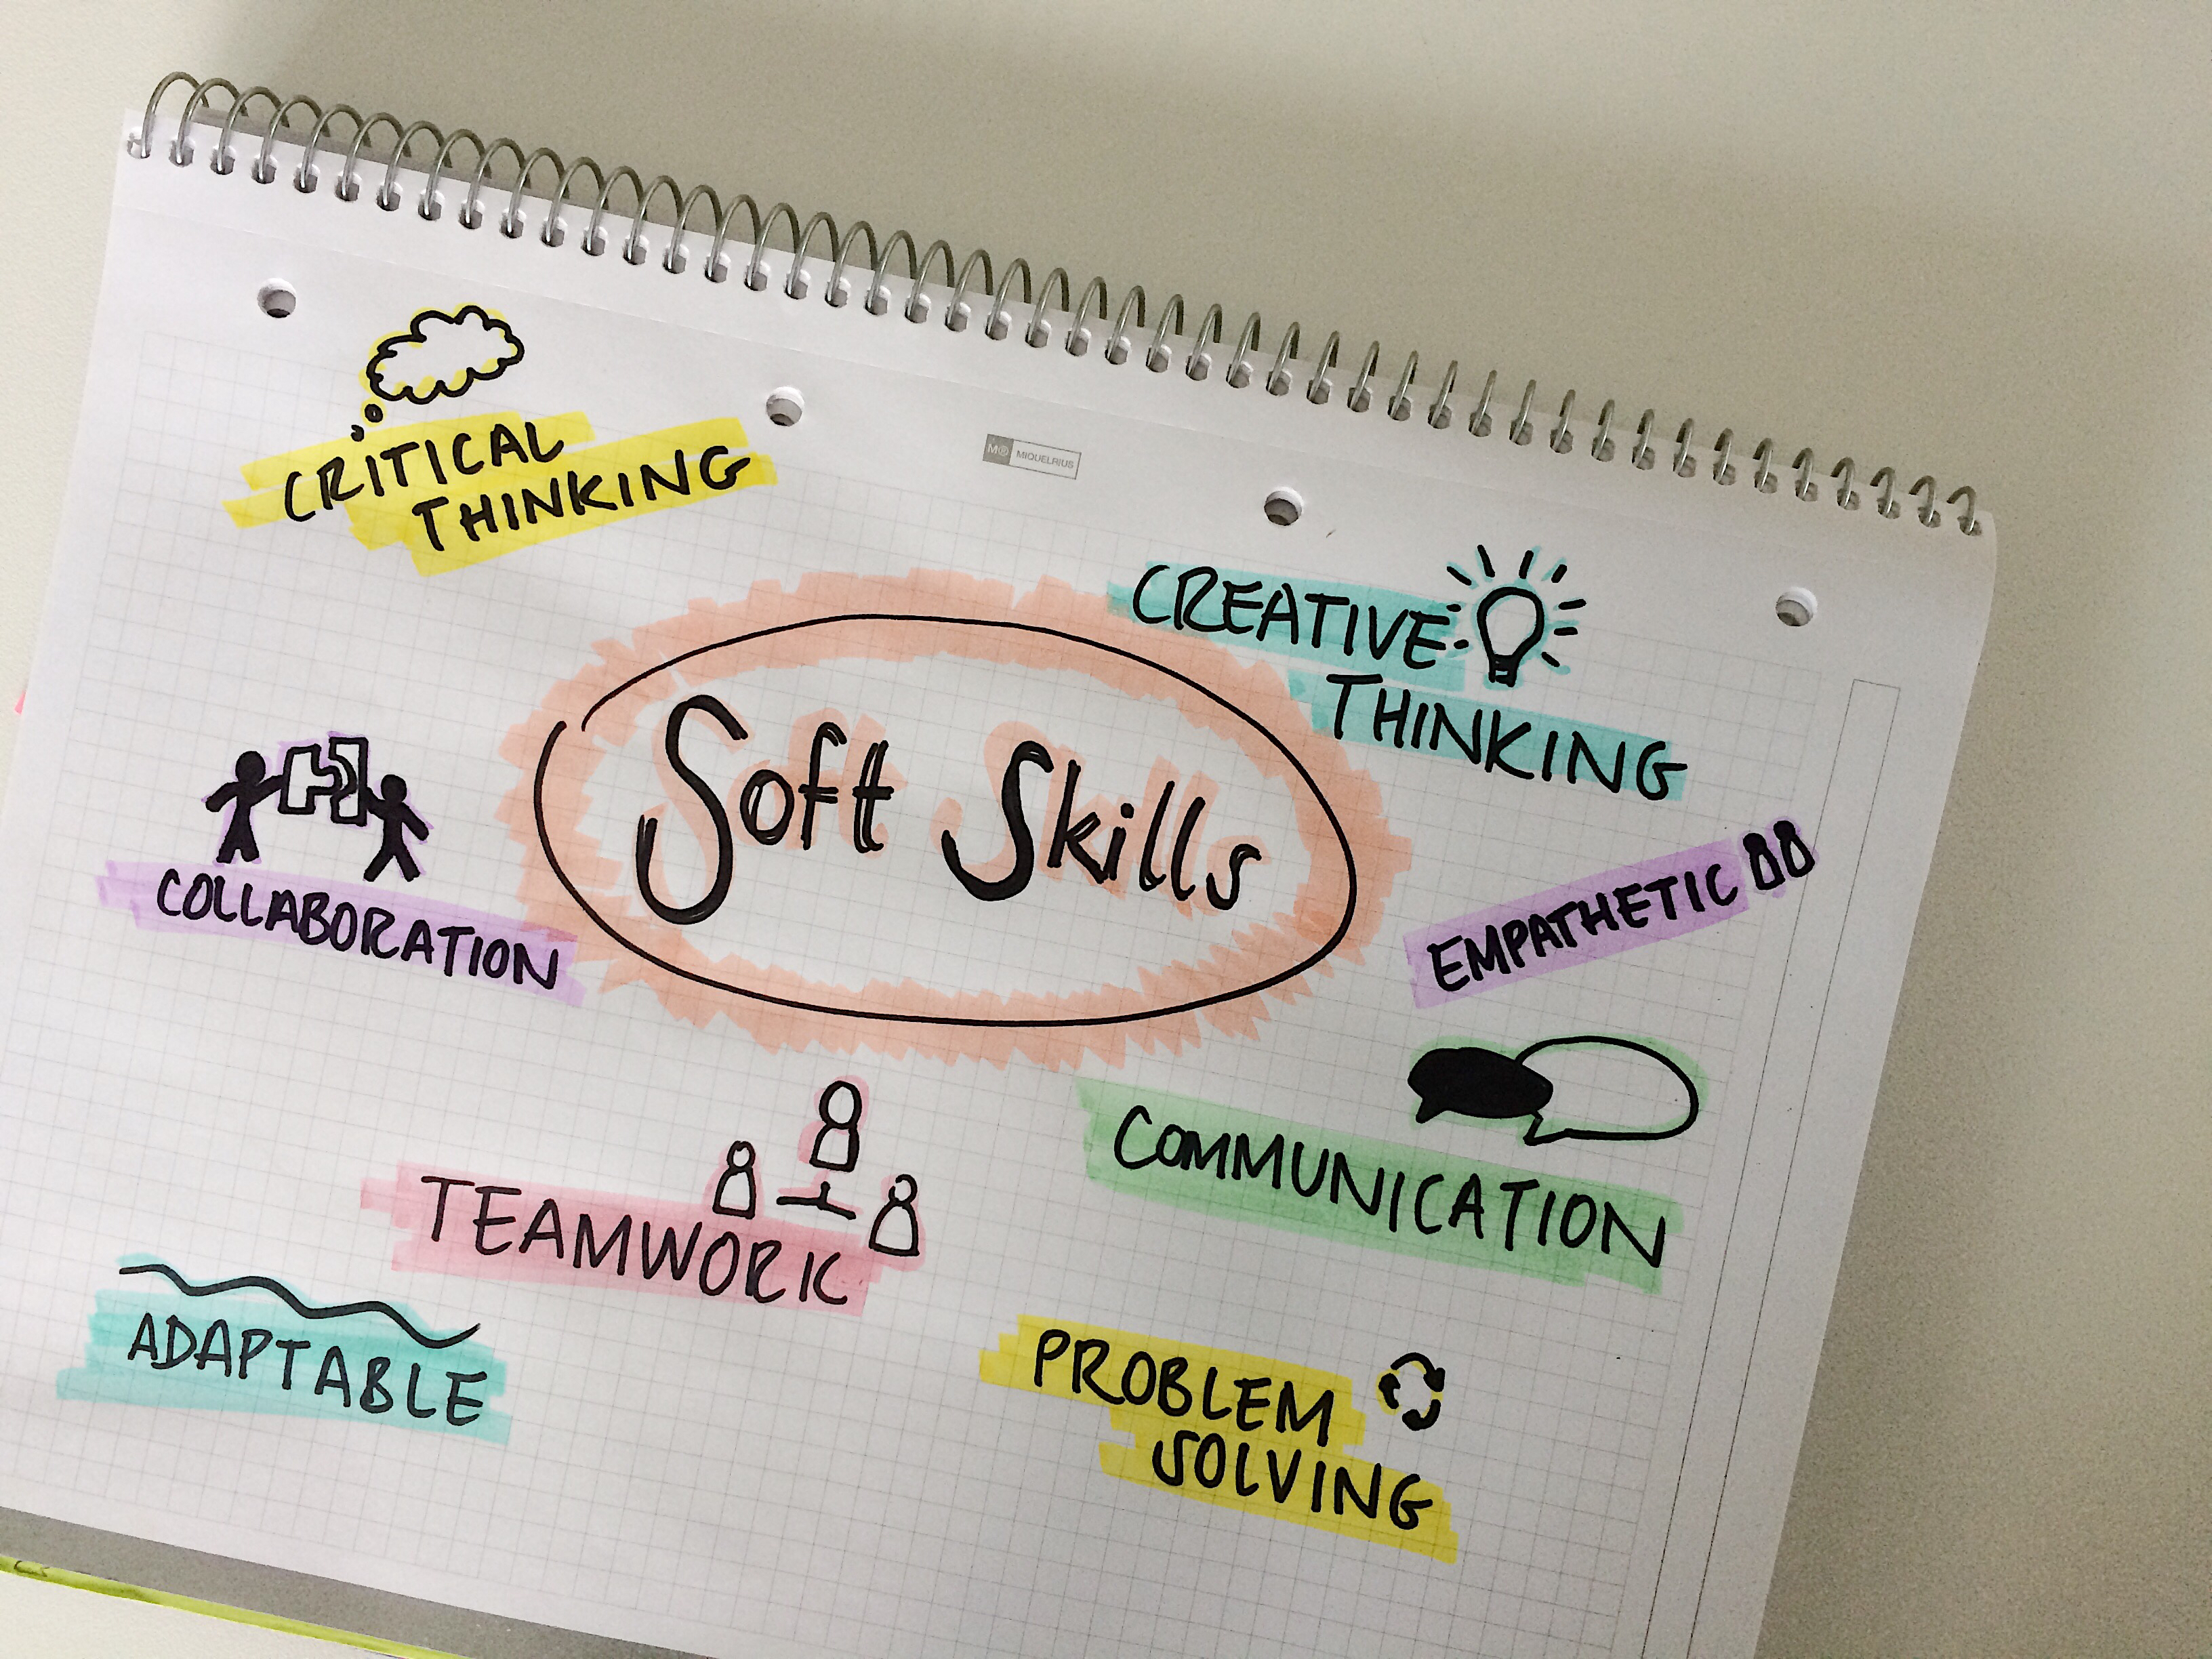 CRITICAL
THINKING
M® MIQUELRIUS
CREATIVE
THINKING
Soft Skills
COLLABORATION
EMPATHETIC
COMMUNICATION
TEAMWORK
ADAPTABLE
PROBLEM
SOLVING